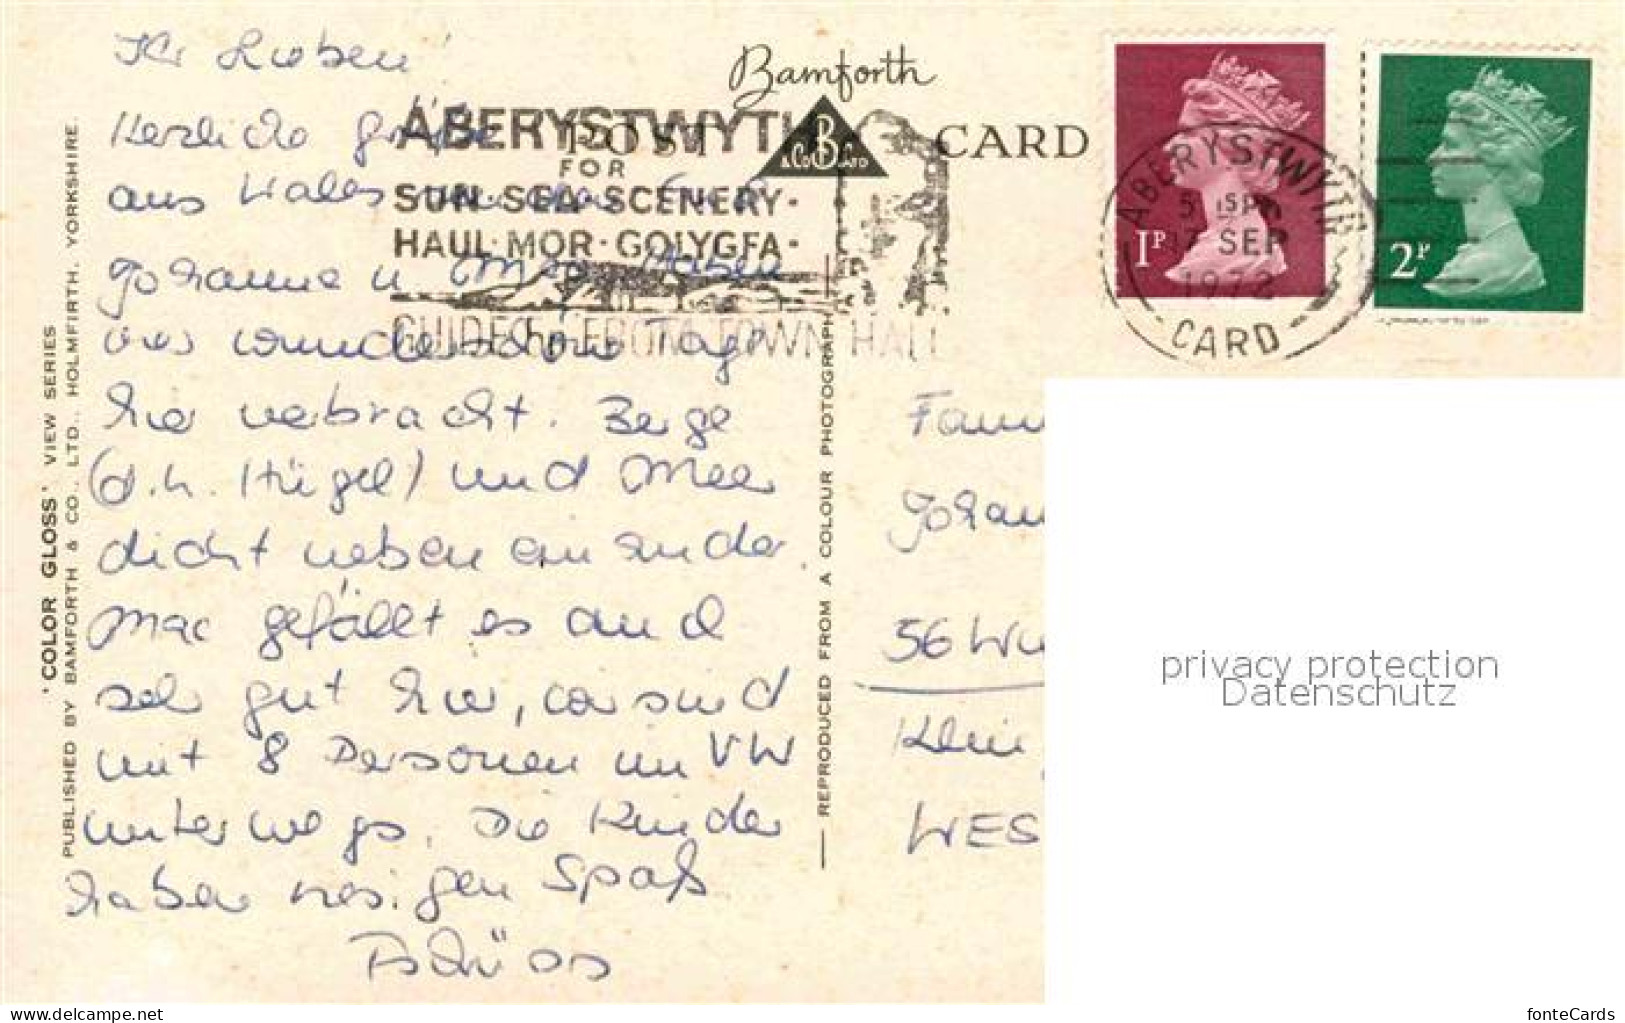 Ihr Lieben!
Herzliche Grüße
aus Wales
Johanne u
vier wunderschöne Tage
hier verbracht. Berge
(d.h. Hügel) und Meer
dicht neben einander.
Mac gefällt es auch
sehr gut hier, wir sind
mit 8 Personen im VW
unterwegs. Die Kinder
haben riesigen Spaß
Tschüss
'COLOR GLOSS' VIEW SERIES
PUBLISHED BY BAMFORTH & CO., LTD., HOLMFIRTH, YORKSHIRE.
Bamforth
POST CARD
B
& Co LTD
ABERYSTWYTH
FOR
SUN·SEA·SCENERY·
HAUL·MOR·GOLYGFA·
GUIDE FROM TOWN HALL
REPRODUCED FROM A COLOUR PHOTOGRAPH
1P
2P
ABERYSTWYTH
7 SEP
CARD
Fam
Johan
56 Wu
Klein
WES
privacy protection
Datenschutz
www.delcampe.net
fonteCards